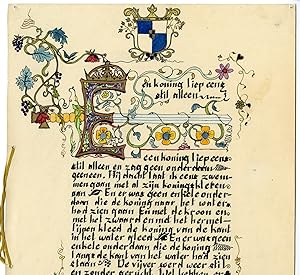 Een koning liep eens
stil alleen
Een koning liep eens
stil alleen en zag geen onderdaan
geeneen. Hij dacht laat ik eens zwem-
men gaan met al zijn koningskleren
aan. En er was geen enkele onder-
daan die de koning naar het water
had zien gaan en met de kroon en
met het zwaard en met het herme-
lijnen kleed de koning van de kant
in het water gleed. En er was geen
enkele onderdaan die de koning
langs de kant van het water had zien
staan. De vijver werd weer stil
en zonder gerucht. Wel hebben